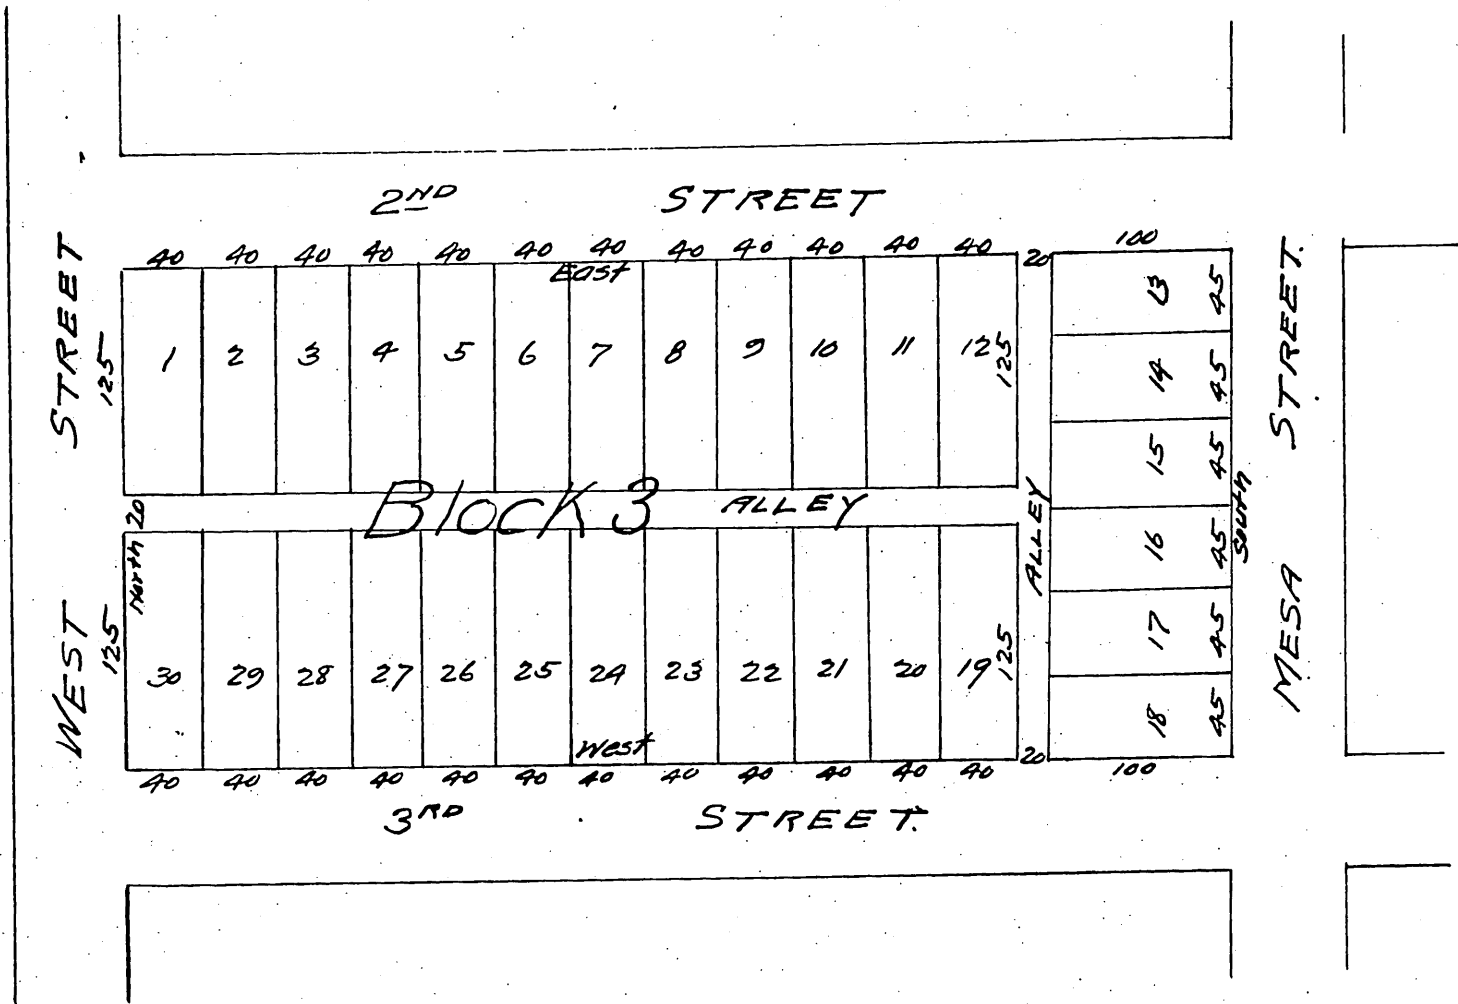 2ND STREET
40 40 40 40 40 40 40 40 40 40 40 40 20 100
East
WEST STREET
125
1 2 3 4 5 6 7 8 9 10 11 12 125
13 45
14 45
15 45
16 45
17 45
18 45
South
MESA STREET.
20
Block 3 ALLEY
ALLEY
North
125
30 29 28 27 26 25 24 23 22 21 20 19 125
West
40 40 40 40 40 40 40 40 40 40 40 40 20 100
3RD STREET.